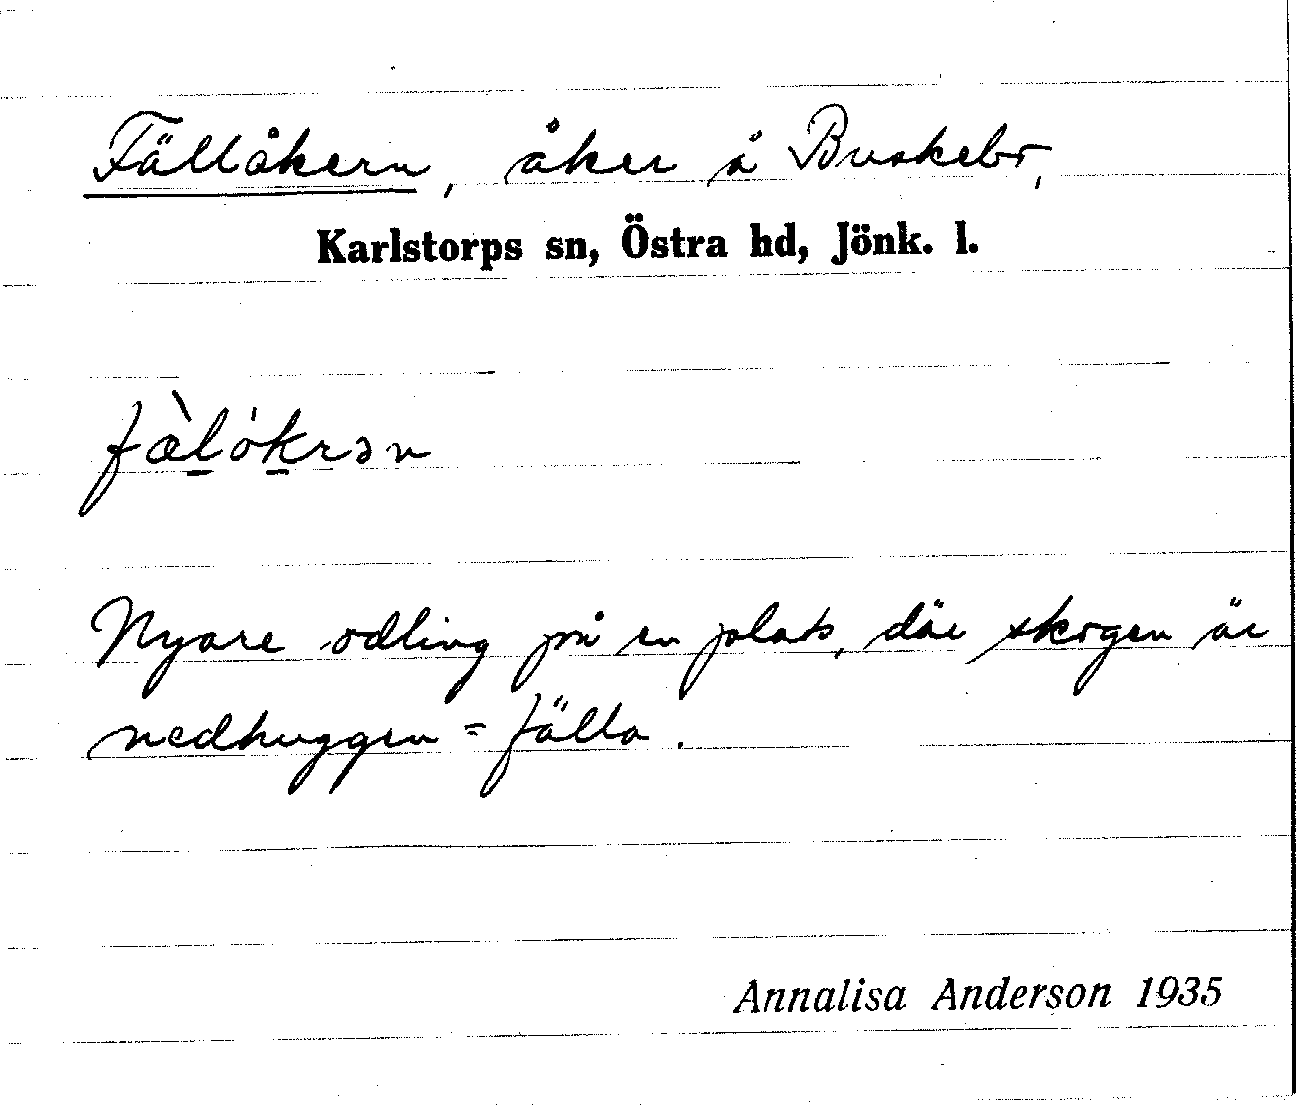 Fällåkern, åker å Buskebo,
Karlstorps sn, Östra hd, Jönk. l.
fæ̀l̲ók̲rən
Nyare odling på en plats, där skogen är
nedhuggen = fälla.
Annalisa Anderson 1935